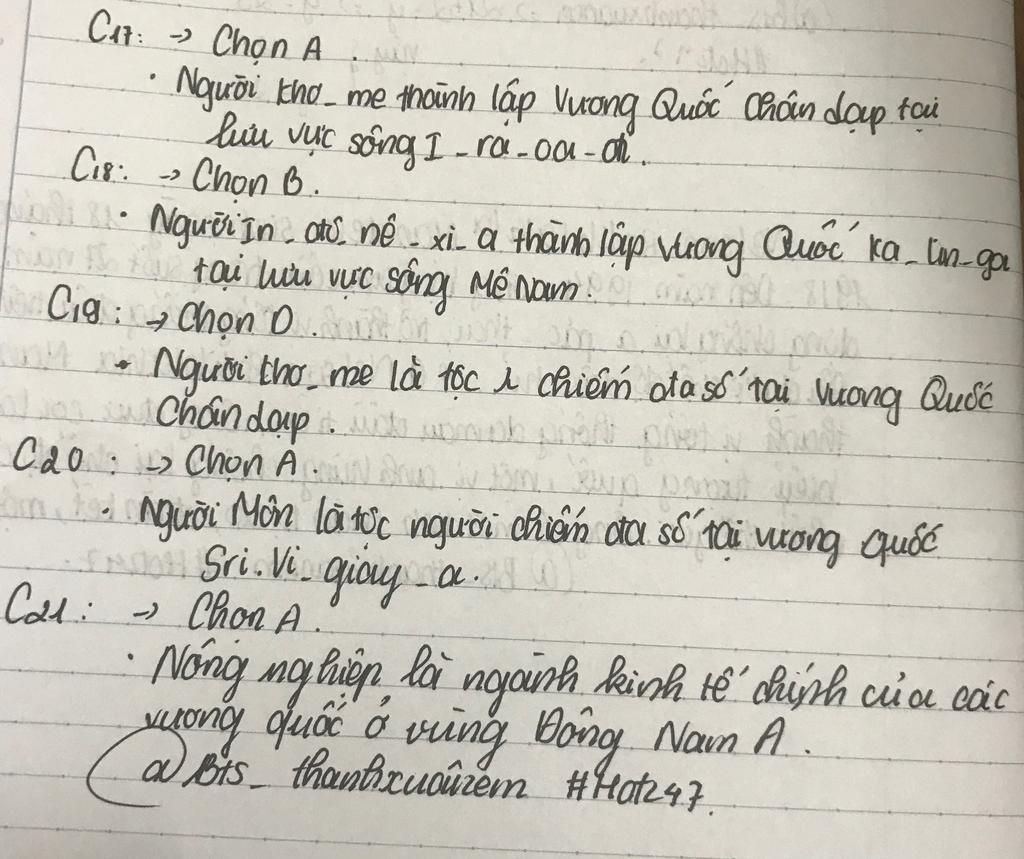 C17: → Chọn A.
• Người Khơ_me thành lập Vương Quốc Chân dạp tại
lưu vực sông I_ra_oa_đi.
C18: → Chọn B.
• Người In_đô_nê_xi_a thành lập vương Quốc Ka_lin_ga
tại lưu vực sông Mê Nam.
C19: → Chọn D.
• Người khơ_me là tộc chiếm đa số tại Vương Quốc
Chân dạp.
C20: → Chọn A.
• Người Môn là tộc người chiếm đa số tại vương quốc
Sri.Vi_giay_a.
C21: → Chọn A.
• Nông nghiệp là ngành kinh tế chính của các
vương quốc ở vùng Đông Nam A.
@Bts_ #Hoh247.